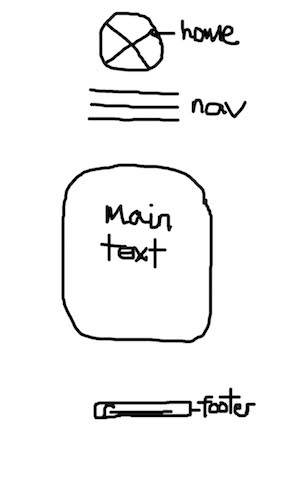 home
nav
Main
text
footer